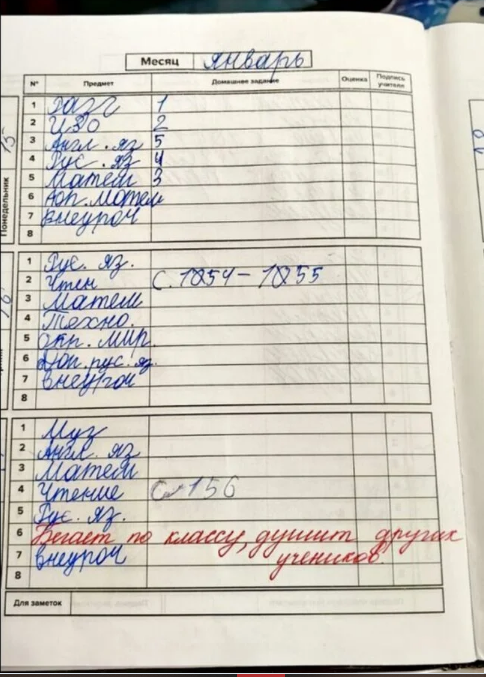 Месяц январь
№ Предмет Домашнее задание Оценка Подпись учителя
Понедельник 15
1 Разг 1
2 ИЗО 2
3 Англ. яз 5
4 Рус. яз 4
5 Матем 3
6 Доп. матем
7 внеуроч
8
16
1 Рус. яз.
2 Чтен с. 154-155
3 Матем
4 Техно.
5 окр. мир.
6 Доп. рус. яз.
7 внеуроч
8
1 Муз
2 Англ. яз
3 Матем
4 Чтение С 156
5 Рус. яз.
6 Бегает по классу, душит других
7 внеуроч учеников.
8
Для заметок